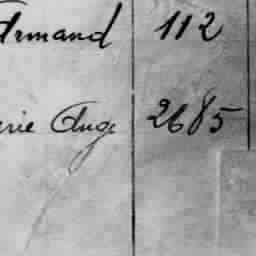 Armand 112
erie Ange 2685